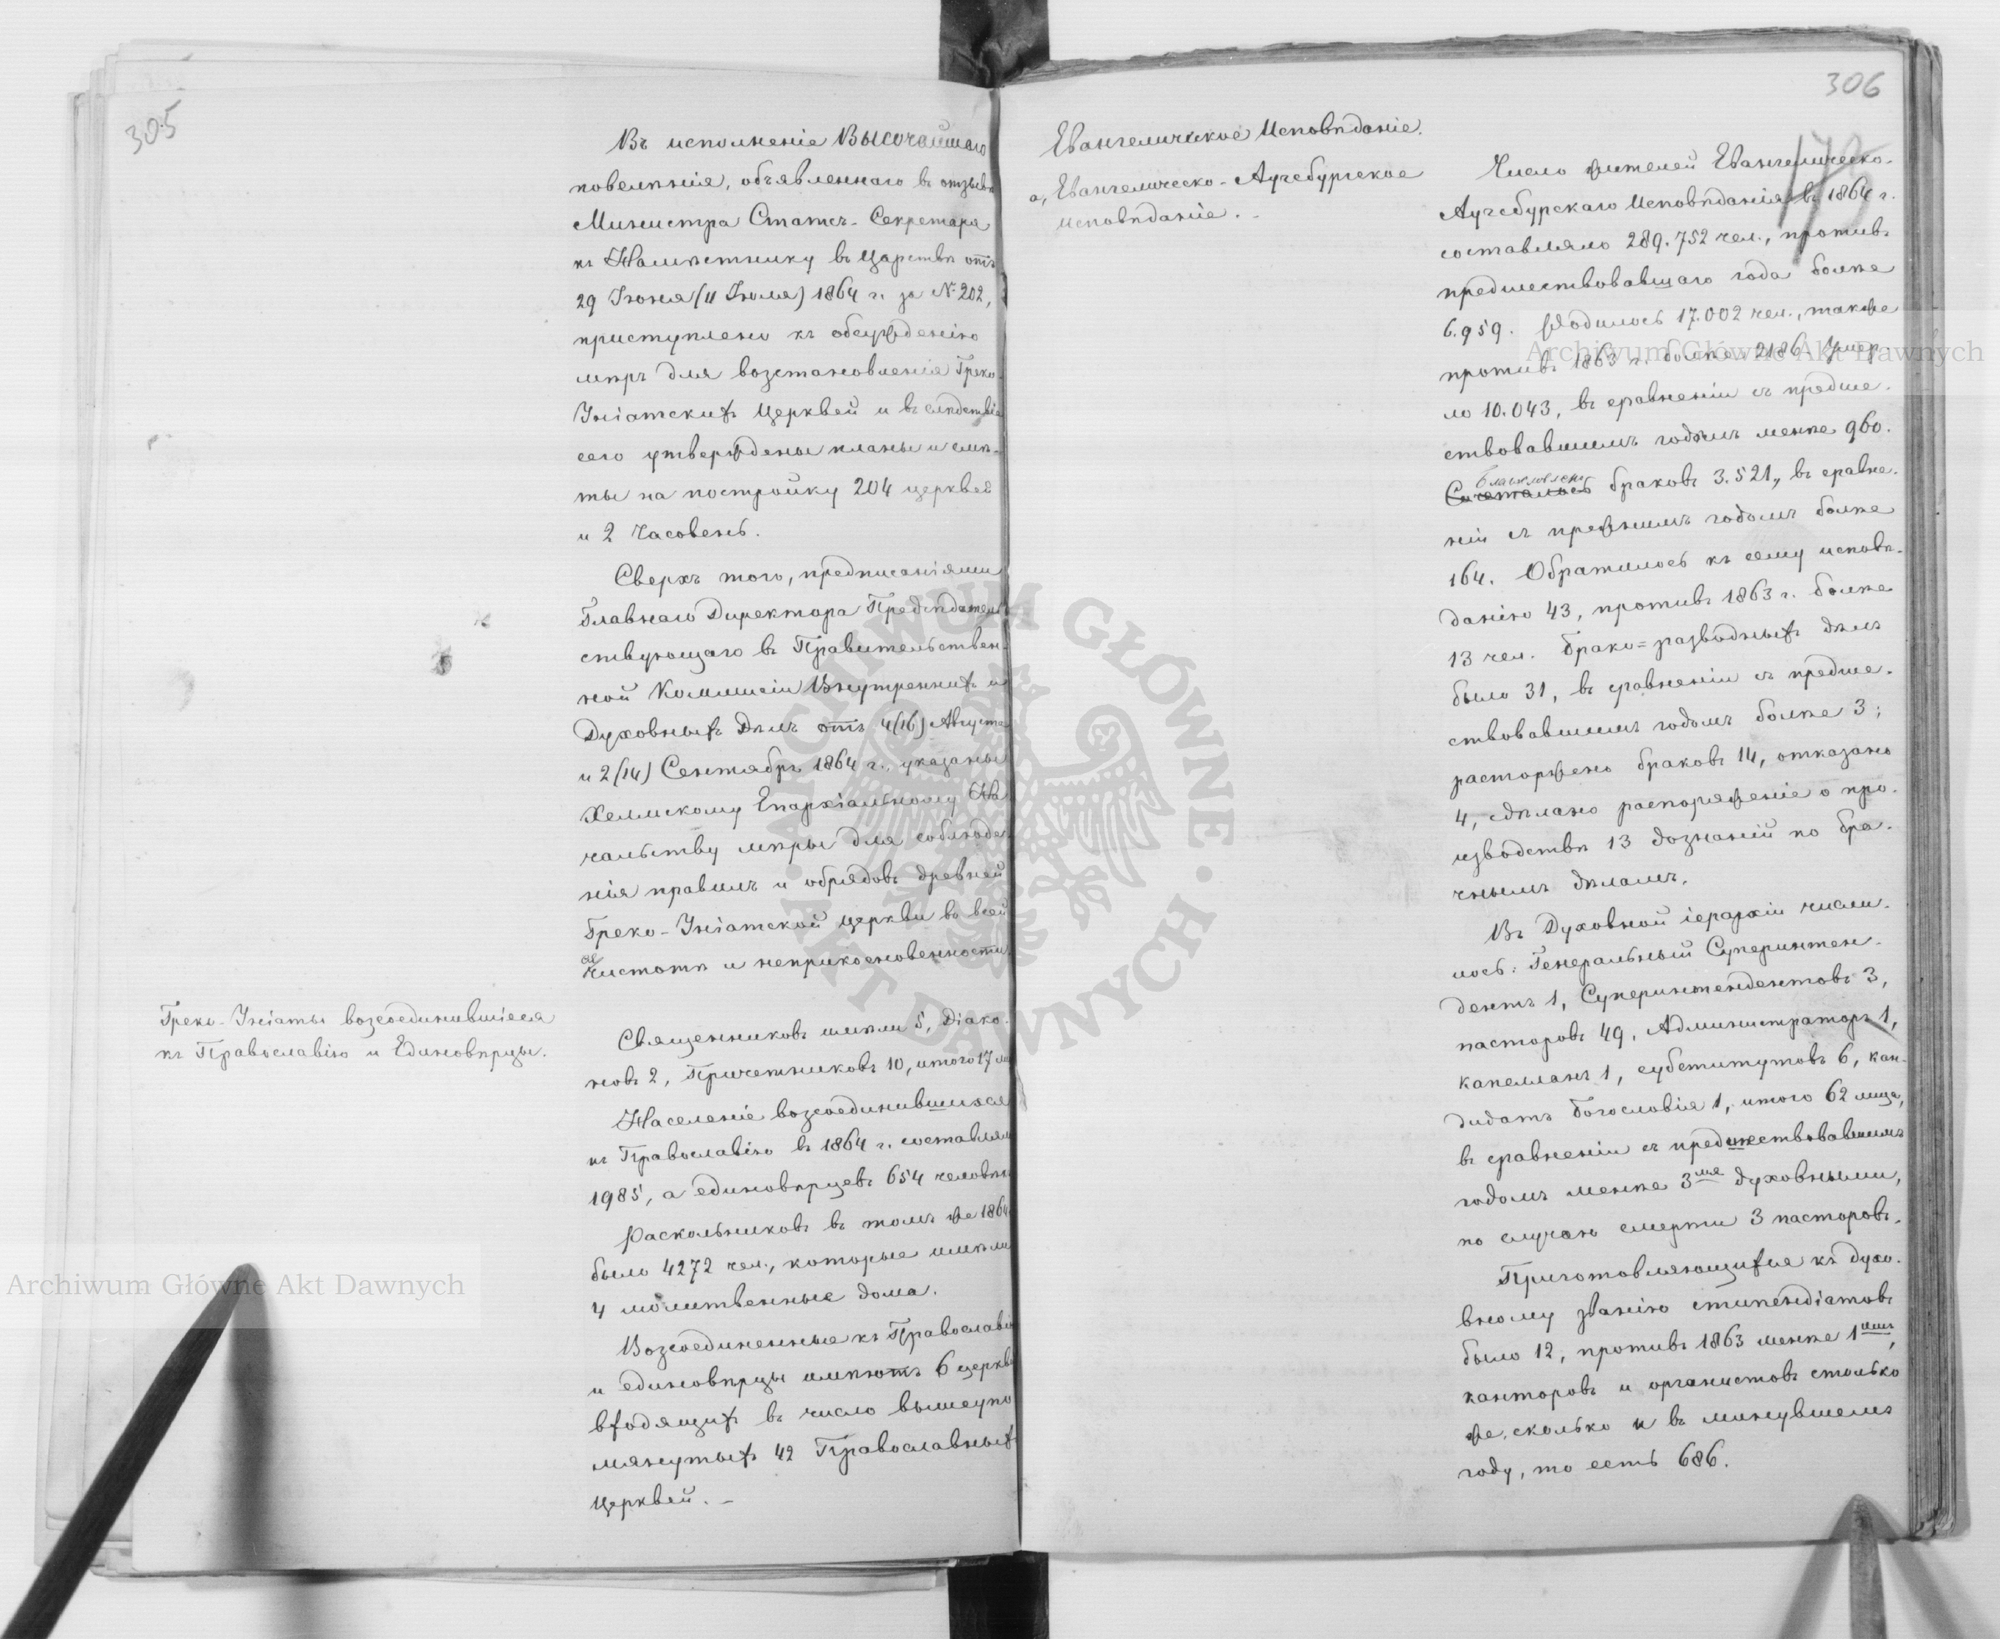 305
Въ исполненіе Высочайшаго
повелѣнія, объявленнаго въ отзывѣ
Министра Статсъ-Секретаря
къ Намѣстнику въ Царствѣ отъ
29 Іюня (11 Іюля) 1864 г. за № 202,
приступлено къ обсужденію
мѣръ для возстановленія Греко-
Уніатскихъ Церквей и въ слѣдствіе
сего утверждены планы и смѣ-
ты на постройку 204 церквей
и 2 Часовень.
Сверхъ того, предписаніями
Главнаго Директора Предсѣдатель
ствующаго въ Правительствен-
ной Коммисіи Внутреннихъ и
Духовныхъ Дѣлъ отъ 4 (16) Августа
и 2 (14) Сентября 1864 г. указаны
Холмскому Епархіальному На
чальству мѣры для соблюде-
нія правилъ и обрядовъ древней
Греко-Уніатской церкви во всей
ея
чистотѣ и неприкосновенности.
Греко-Уніаты возсоединившіеся
къ Православію и Единовѣрцы.
Священниковъ имѣли 5, Діако-
новъ 2, Причетниковъ 10, итого 17 ли
Населеніе возсоединившихся
къ Православію въ 1864 г. составляло
1985, а единовѣрцевъ 654 человѣка
Раскольниковъ въ томъ же 1864
было 4272 чел., которые имѣли
4 молитвенные дома.
Возсоединенные къ Православію
и единовѣрцы имѣютъ 6 церквей
входящихъ въ число вышеупо
мянутыхъ 42 Православныхъ
Церквей. –
306
173
Евангелическое Исповѣданіе.
а, Евангелическо-Аугсбургское
исповѣданіе. –
Число жителей Евангелическо-
Аугсбурскаго Исповѣданія въ 1864 г.
составляло 289.752 чел., противъ
предшествовавшаго года болѣе
6.959. Родилось 17.002 чел., также
противъ 1863 г. болѣе 2186. Умер-
ло 10.043, въ сравненіи съ предше-
ствовавшимъ годомъ менѣе 960.
благословлено
Сочеталось браковъ 3.521, въ сравне-
ніи съ прежнимъ годомъ болѣе
164. Обратилось къ сему исповѣ-
данію 43, противъ 1863 г. болѣе
13 чел. Брако=разводныхъ дѣлъ
было 31, въ сравненіи съ предше-
ствовавшимъ годомъ болѣе 3;
расторжено браковъ 14, отказано
4, сдѣлано распоряженіе о про-
изводствѣ 13 дознаній по бра-
чнымъ дѣламъ.
Въ Духовной іерархіи числи-
лось: Генеральный Суперинтен-
дентъ 1, Суперинтендентовъ 3,
пасторовъ 49, Администраторъ 1,
капелланъ 1, субститутовъ 6, кан-
дидатъ богословія 1, итого 62 лица,
въ сравненіи съ предшествовавшимъ
годомъ менѣе 3мя духовными,
по случаю смерти 3 пасторовъ.
Приготовляющихся къ духо-
вному званію стипендіатовъ
было 12, противъ 1863 менѣе 1имъ,
канторовъ и органистовъ столько
же, сколько и въ минувшемъ
году, то есть 686.
Archiwum Główne Akt Dawnych
Archiwum Główne Akt Dawnych
ARCHIWUM GŁÓWNE · AKT DAWNYCH ·